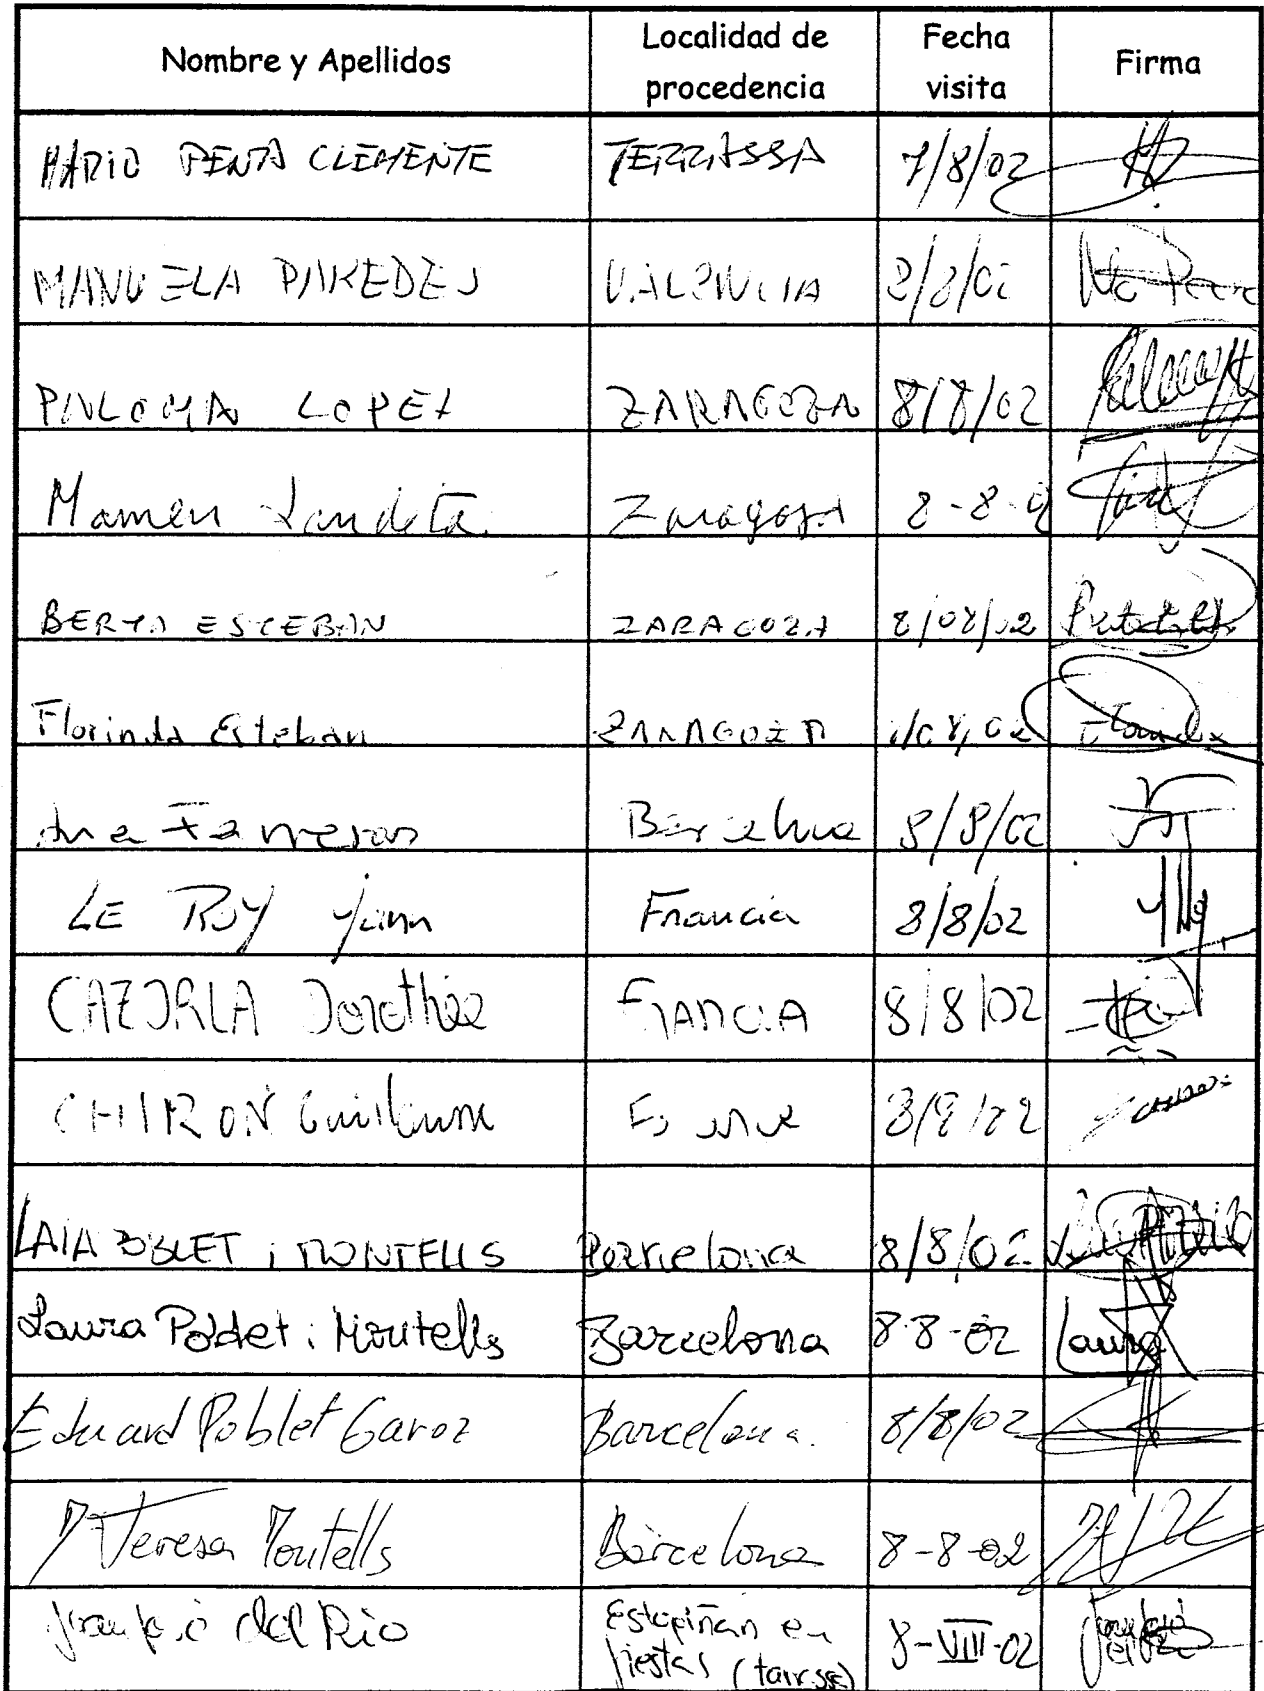 Nombre y Apellidos Localidad de procedencia Fecha visita Firma
MARIO PENA CLEMENTE TERRASSA 7/8/02
MANUELA PAREDES VALENCIA 8/8/02
PALOMA LOPEZ ZARAGOZA 8/8/02
Mamen Landeta Zaragoza 8-8-02
BERTA ESTEBAN ZARAGOZA 8/08/02
Florinda Esteban ZARAGOZA
Ana Barcelona 8/8/02
LE ROY Yann Francia 8/8/02
CAZORLA Dorothée FRANCIA 8/8/02
CHIRON Guillaume 8/8/02
LAIA POBLET i MONTELLS Barcelona 8/8/02
Laura Poblet i Montells Barcelona 8-8-02 Laura
Eduard Poblet Garoz Barcelona. 8/8/02
Mª Teresa Montells Barcelona 8-8-02
del Rio Estopiñan en fiestas 8-VIII-02